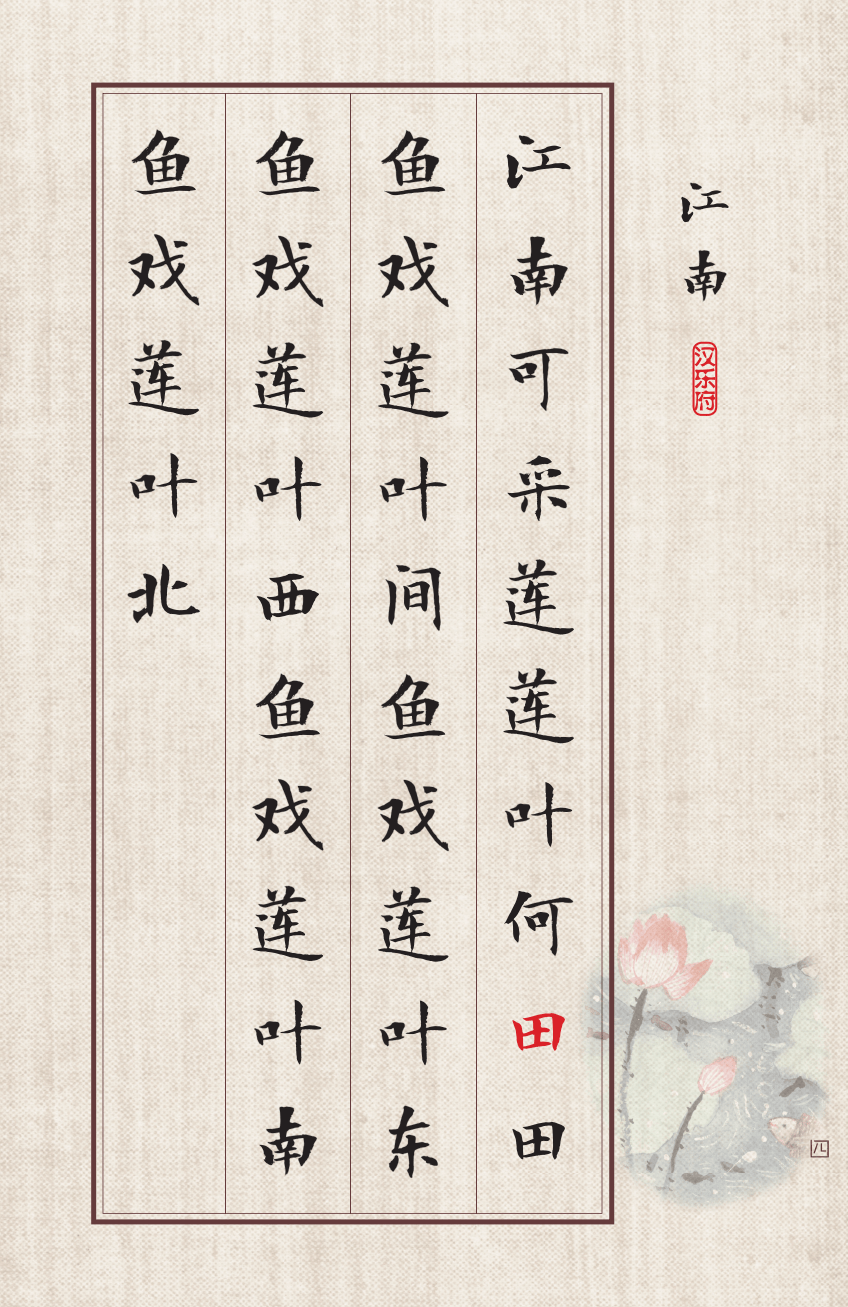 江南
汉乐府
江南可采莲莲叶何田田
鱼戏莲叶间鱼戏莲叶东
鱼戏莲叶西鱼戏莲叶南
鱼戏莲叶北
四